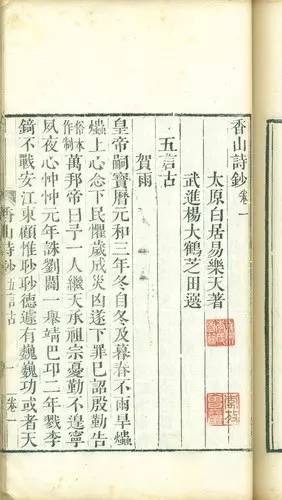 香山詩鈔卷一
太原白居易樂天著
武進楊大鶴芝田選
五言古
賀雨
皇帝嗣寶曆元和三年冬自冬及暮春不雨旱爞
爞上心念下民懼歲成災凶遂下罪己詔殷勤告
俗本作制萬邦帝曰予一人繼天承祖宗憂勤不遑寧
夙夜心忡忡元年誅劉闢一舉靖巴邛二年戮李
錡不戰安江東顧惟眇眇德遽有巍巍功或者天
香山詩鈔 五言古 一 卷一